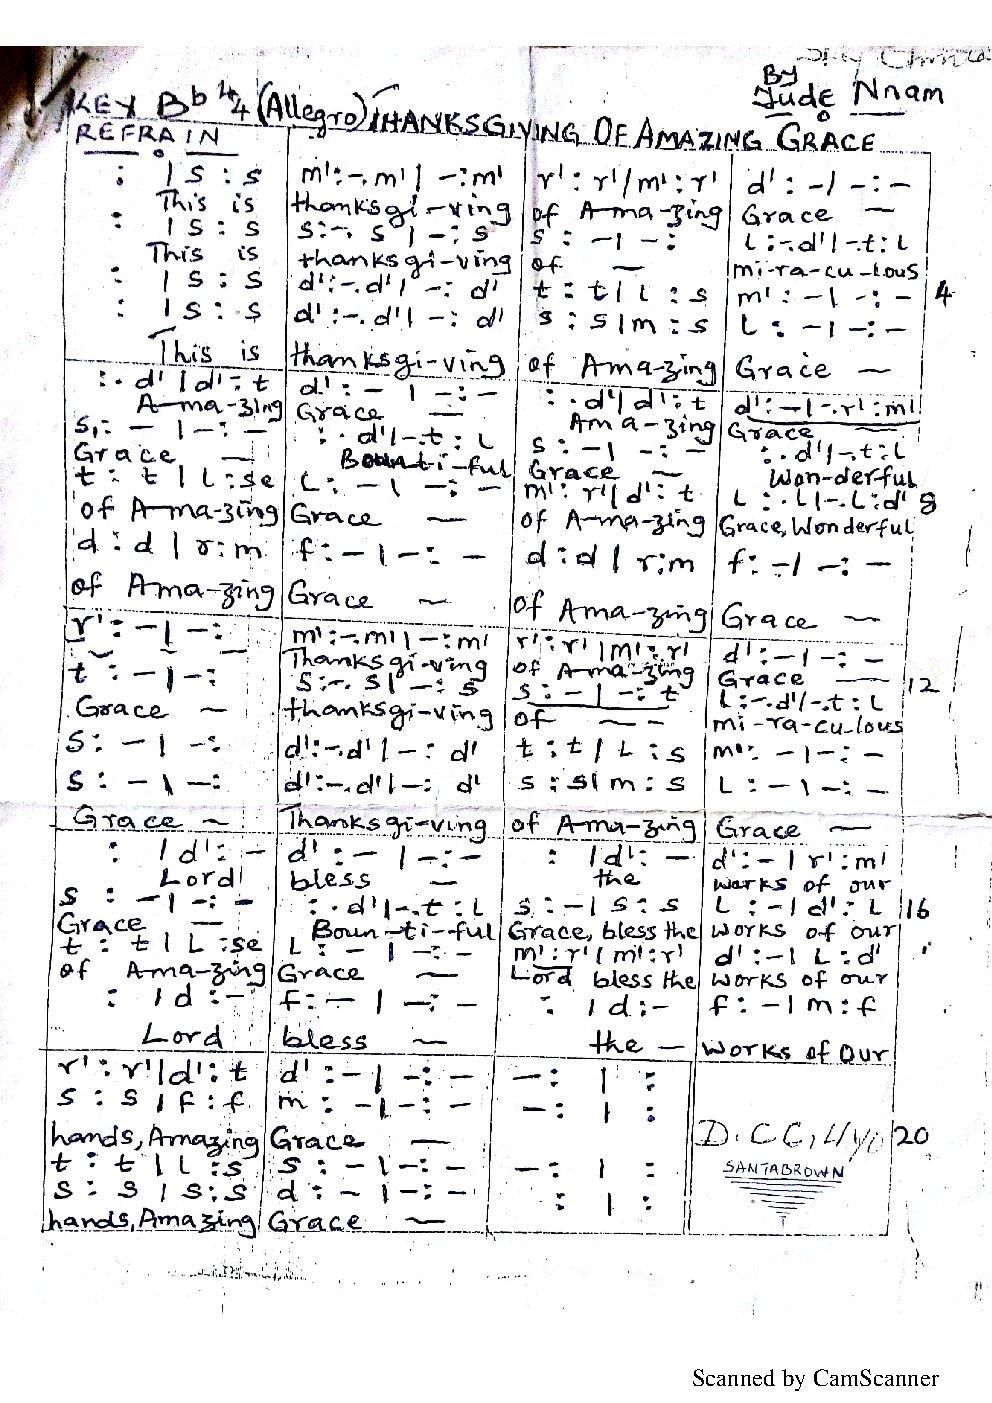 By
Jude Nnam
KEY Bb 4/4 (Allegro) THANKSGIVING OF AMAZING GRACE
REFRAIN
: | s : s   m' : -. m' | - : m'   r' : r' | m' : r'   d' : - | - : -
This is thanksgi-ving of A-ma-zing Grace —
: | s : s   s : -. s | - : s   s : - | - :   L : -. d' | -. t : L
This is thanksgi-ving of — mi-ra-cu-lous
: | s : s   d' : -. d' | - : d'   t : t | L : s   m' : - | - : -   4
: | s : s   d' : -. d' | - : d'   s : s | m : s   L : - | - : -
This is thanksgi-ving of Amazing Grace —
: . d' | d' : t   d' : - | - : -   : . d' | d' : t   d' : - | -. r' : m'
A-ma-zing Grace — Ama-zing Grace —
s, : - | - : -   : . d' | -. t : L   s : - | - : -   : . d' | -. t : L
Grace — Boun-ti-ful Grace — Won-derful
t : t | L : se   L : - | - : -   m' : r' | d' : t   L : . L | -. L : d'   8
of A-ma-zing Grace — of A-ma-zing Grace, Wonderful
d : d | r : m   f : - | - : -   d : d | r : m   f : - | - : -
of Ama-zing Grace — of Ama-zing Grace —
r' : - | - :   m' : -. m' | - : m'   r' : r' | m' : r'   d' : - | - : -
Thanksgi-ving of A-ma-zing Grace —
t : - | - :   s : -. s | - : s   s : - | - : t   L : -. d' | -. t : L   12
Grace — thanksgi-ving of — — mi-ra-cu-lous
s : - | - :   d' : -. d' | - : d'   t : t | L : s   m' : - | - : -
s : - | - :   d' : -. d' | - : d'   s : s | m : s   L : - | - : -
Grace — Thanksgi-ving of A-ma-zing Grace —
: | d' : -   d' : - | - : -   : | d' : -   d' : - | r' : m'
Lord bless — the works of our
s : - | - : -   : . d' | -. t : L   s : - | s : s   L : - | d' : L   16
Grace — Boun-ti-ful Grace, bless the works of our
t : t | L : se   L : - | - : -   m' : r' | m' : r'   d' : - | L : d'
of A-ma-zing Grace — Lord bless the works of our
: | d : -   f : - | - : -   : | d : -   f : - | m : f
Lord bless — the — works of Our
r' : r' | d' : t   d' : - | - : -   - : | :
s : s | f : f   m : - | - : -   - : | :
hands, Amazing Grace —   20
t : t | L : s   s : - | - : -   - : | :
SANTABROWN
s : s | s : s   d : - | - : -   : | :
hands, Amazing Grace —
Scanned by CamScanner